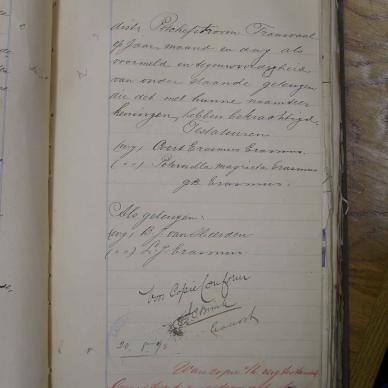 distr Potchefstroom Transvaal
op jaar, maand en dag als
voormeld en tegenwoordigheid
van onder staande getuigen
die dit met hunne naamtee-
keningen, hebben bekrachtigd.
Testateuren
(wg) Overt Erasmus Erasmus
(,,) Petronella Magrieta Erasmus
geb Erasmus.
Als getuigen:
(wg) B. J. van Heerden
(,,) L. J. Erasmus
voor Copie Conform
20. 5. 95